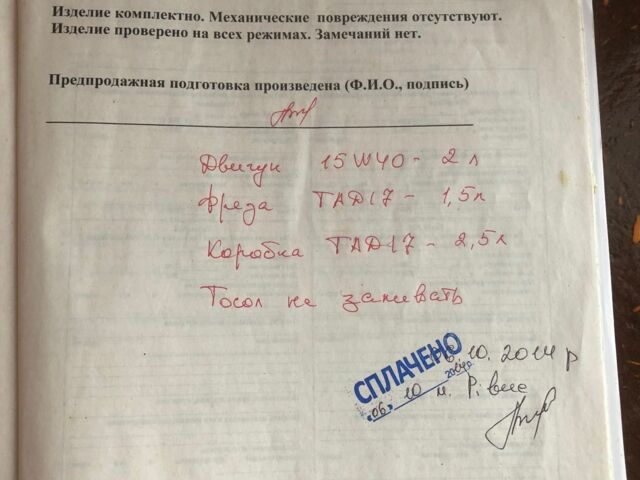 Изделие комплектно. Механические повреждения отсутствуют.
Изделие проверено на всех режимах. Замечаний нет.
Предпродажная подготовка произведена (Ф.И.О., подпись)
Двигун 15W40 - 2 л
Фреза ТАД17 - 1,5л
Коробка ТАД17 - 2,5л
Тосол не заливать
СПЛАЧЕНО
06.10.2014 р
«06» 10 2014р.
м. Рівне